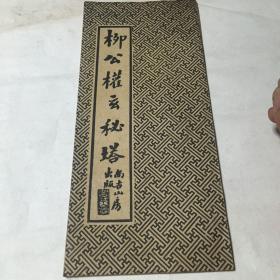 柳公權玄秘塔
尚古山房
出版